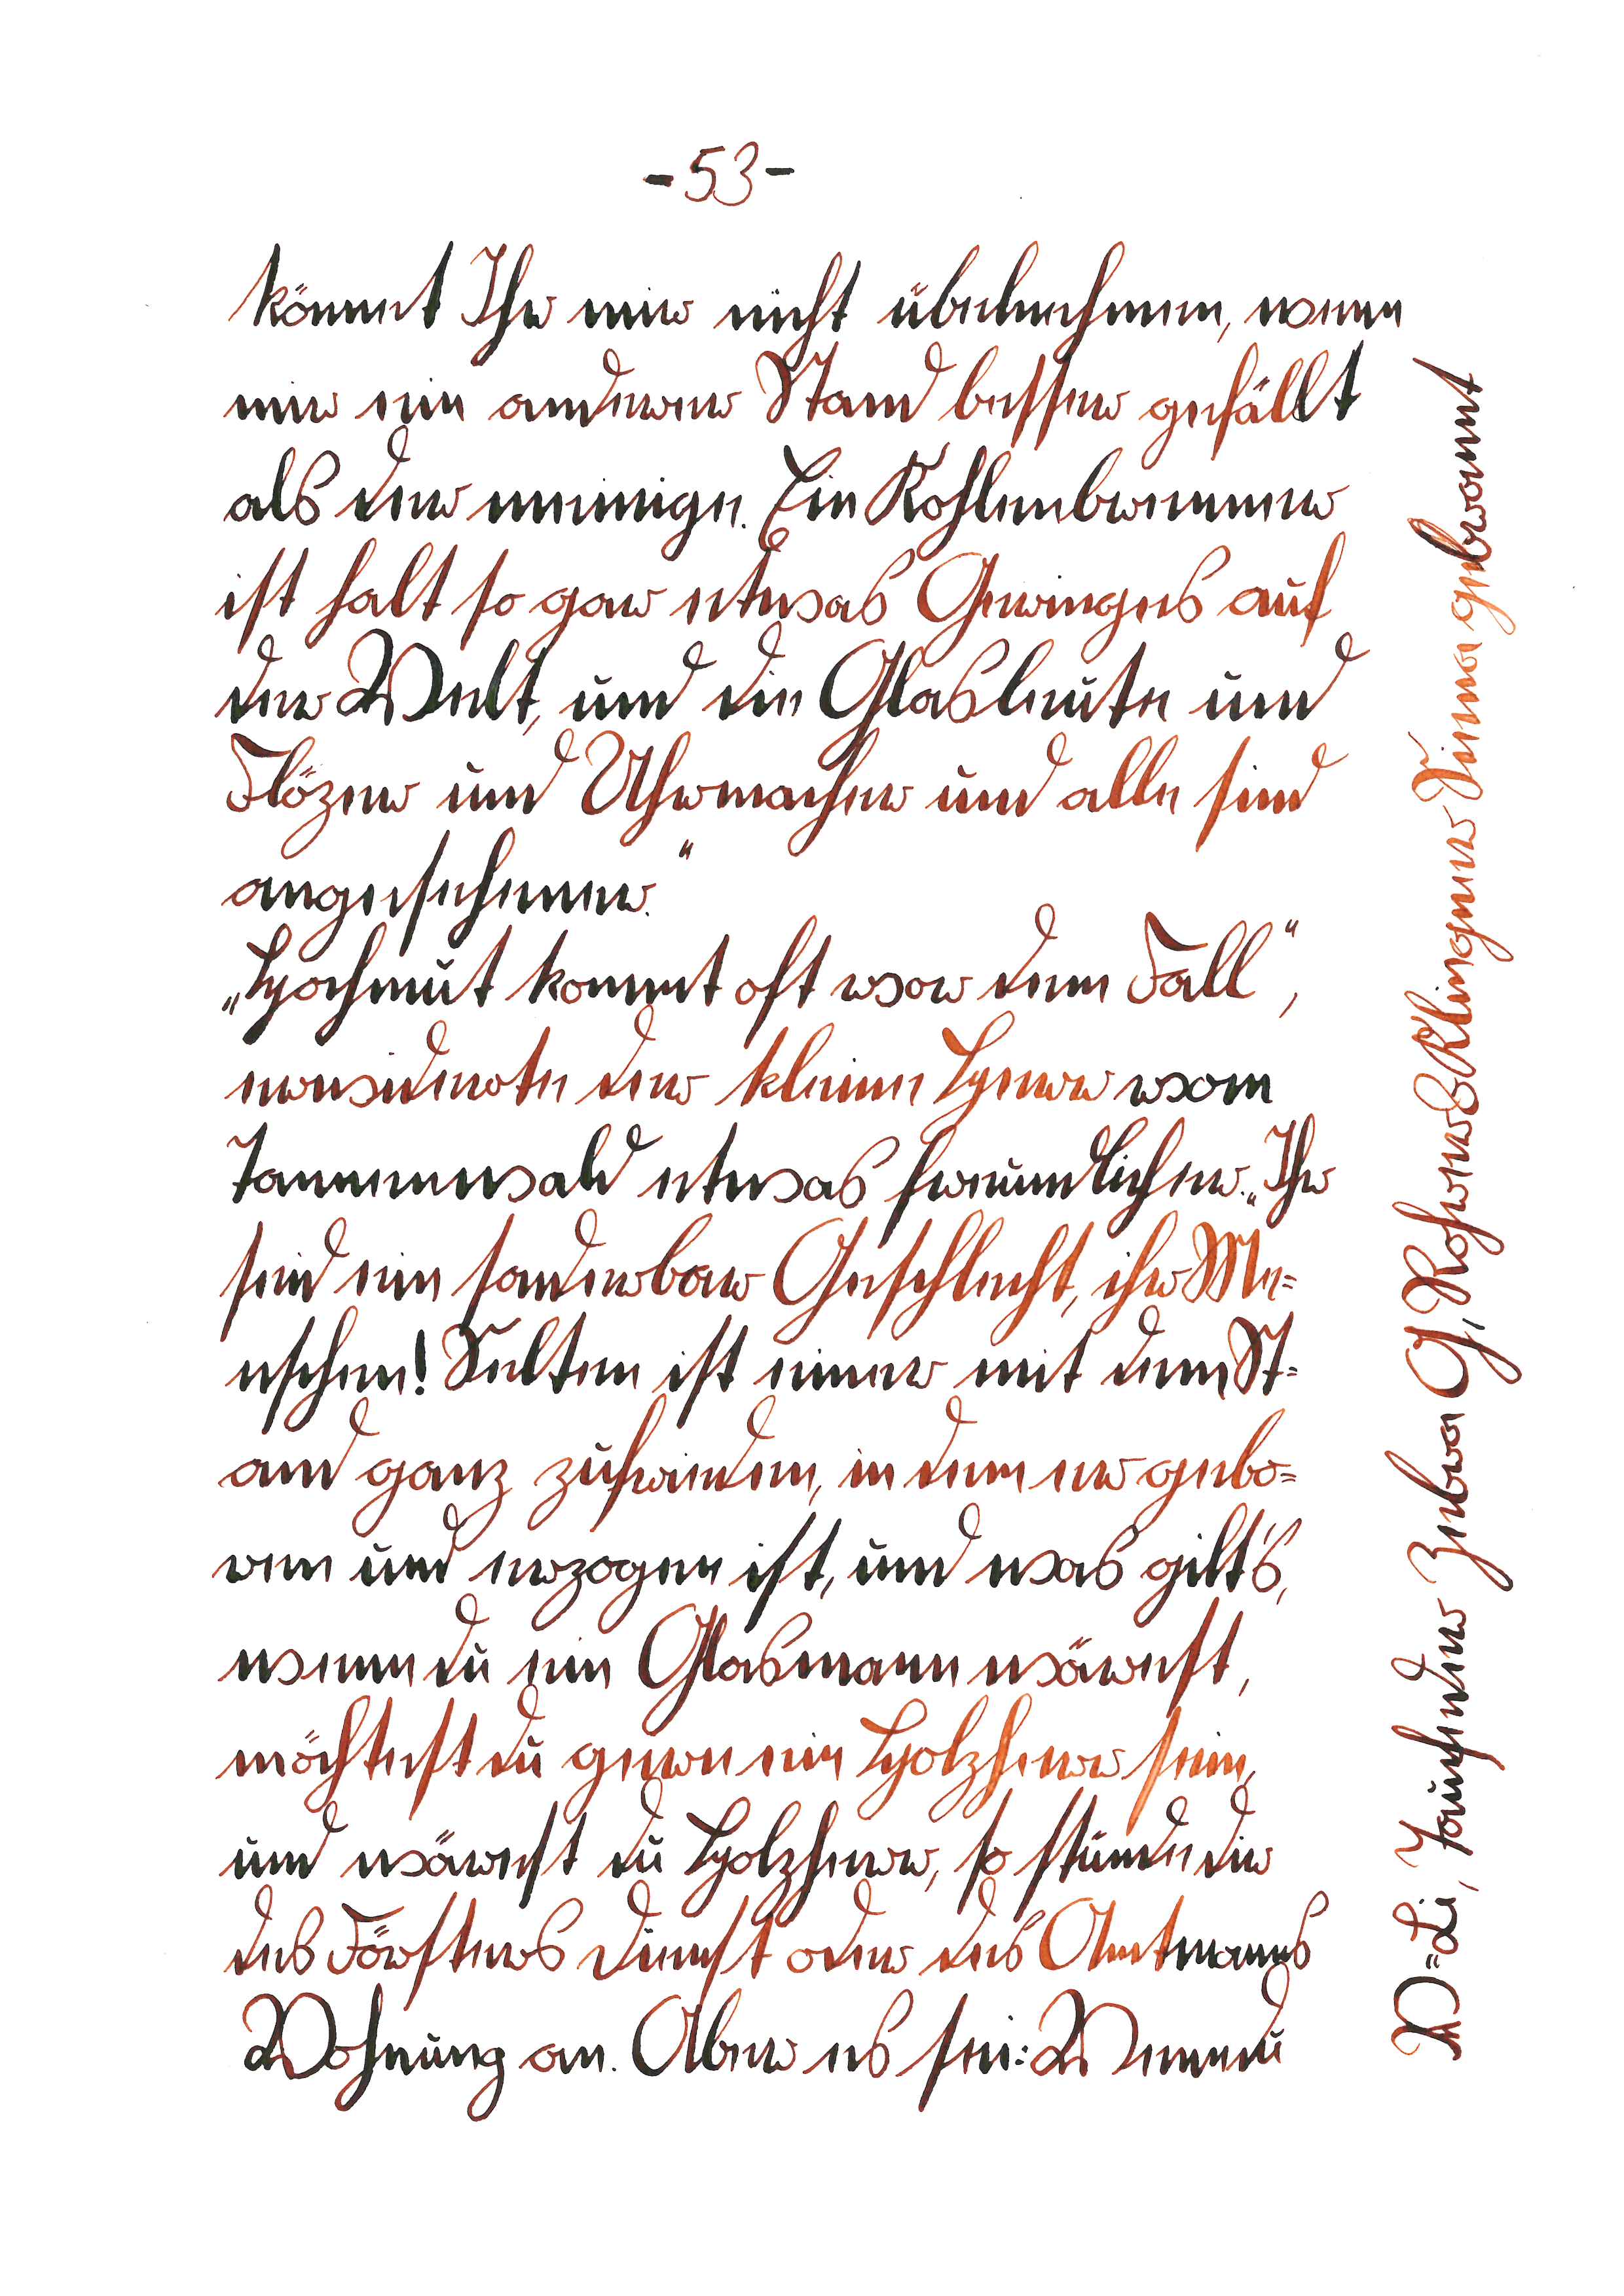 -53-
könnt Ihr mir nicht übelnehmen, wenn
mir ein anderer Stand besser gefällt
als der meinige. Ein Kohlenbrenner
ist halt so gar etwas Geringes auf
der Welt, und die Glasleute und
Flözer und Uhrmacher und alle sind
angesehener."
„Hochmut kommt oft vor dem Fall",
erwiderte der kleine Herr vom
Tannenwald etwas freundlicher. „Ihr
seid ein sonderbar Geschlecht, ihr Me=
nschen! Selten ist einer mit dem St=
and ganz zufrieden, in dem er gebo=
ren und erzogen ist, und was gilt's,
wenn du ein Glasmann wärest,
möchtest du gerne ein Holzherr sein,
und wärest du Holzherr, so stünde dir
des Försters Dienst oder des Amtmanns
Wohnung an. Aber es sei: Wenn du
Tauchfeder Zebra G, Rohrer&Klingner Siena gebrannt